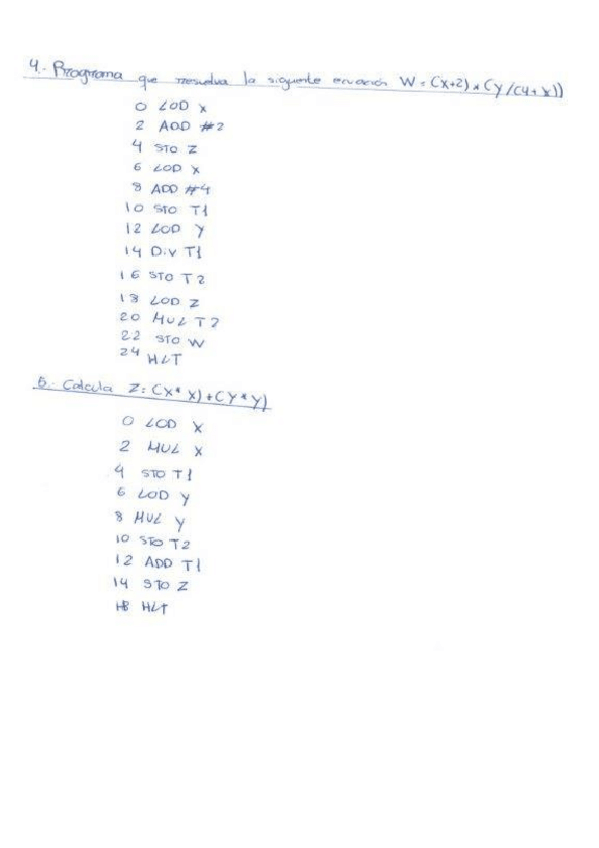 4.- Programa que resuelva la siguiente ecuación W = (x+2) * (y/(4+x))
0 LOD X
2 ADD #2
4 STO Z
6 LOD X
8 ADD #4
10 STO T1
12 LOD Y
14 Div T1
16 STO T2
18 LOD Z
20 MUL T2
22 STO W
24 HLT
5.- Calcula Z = (x * x) + (y * y)
0 LOD X
2 MUL X
4 STO T1
6 LOD Y
8 MUL Y
10 STO T2
12 ADD T1
14 STO Z
HLT